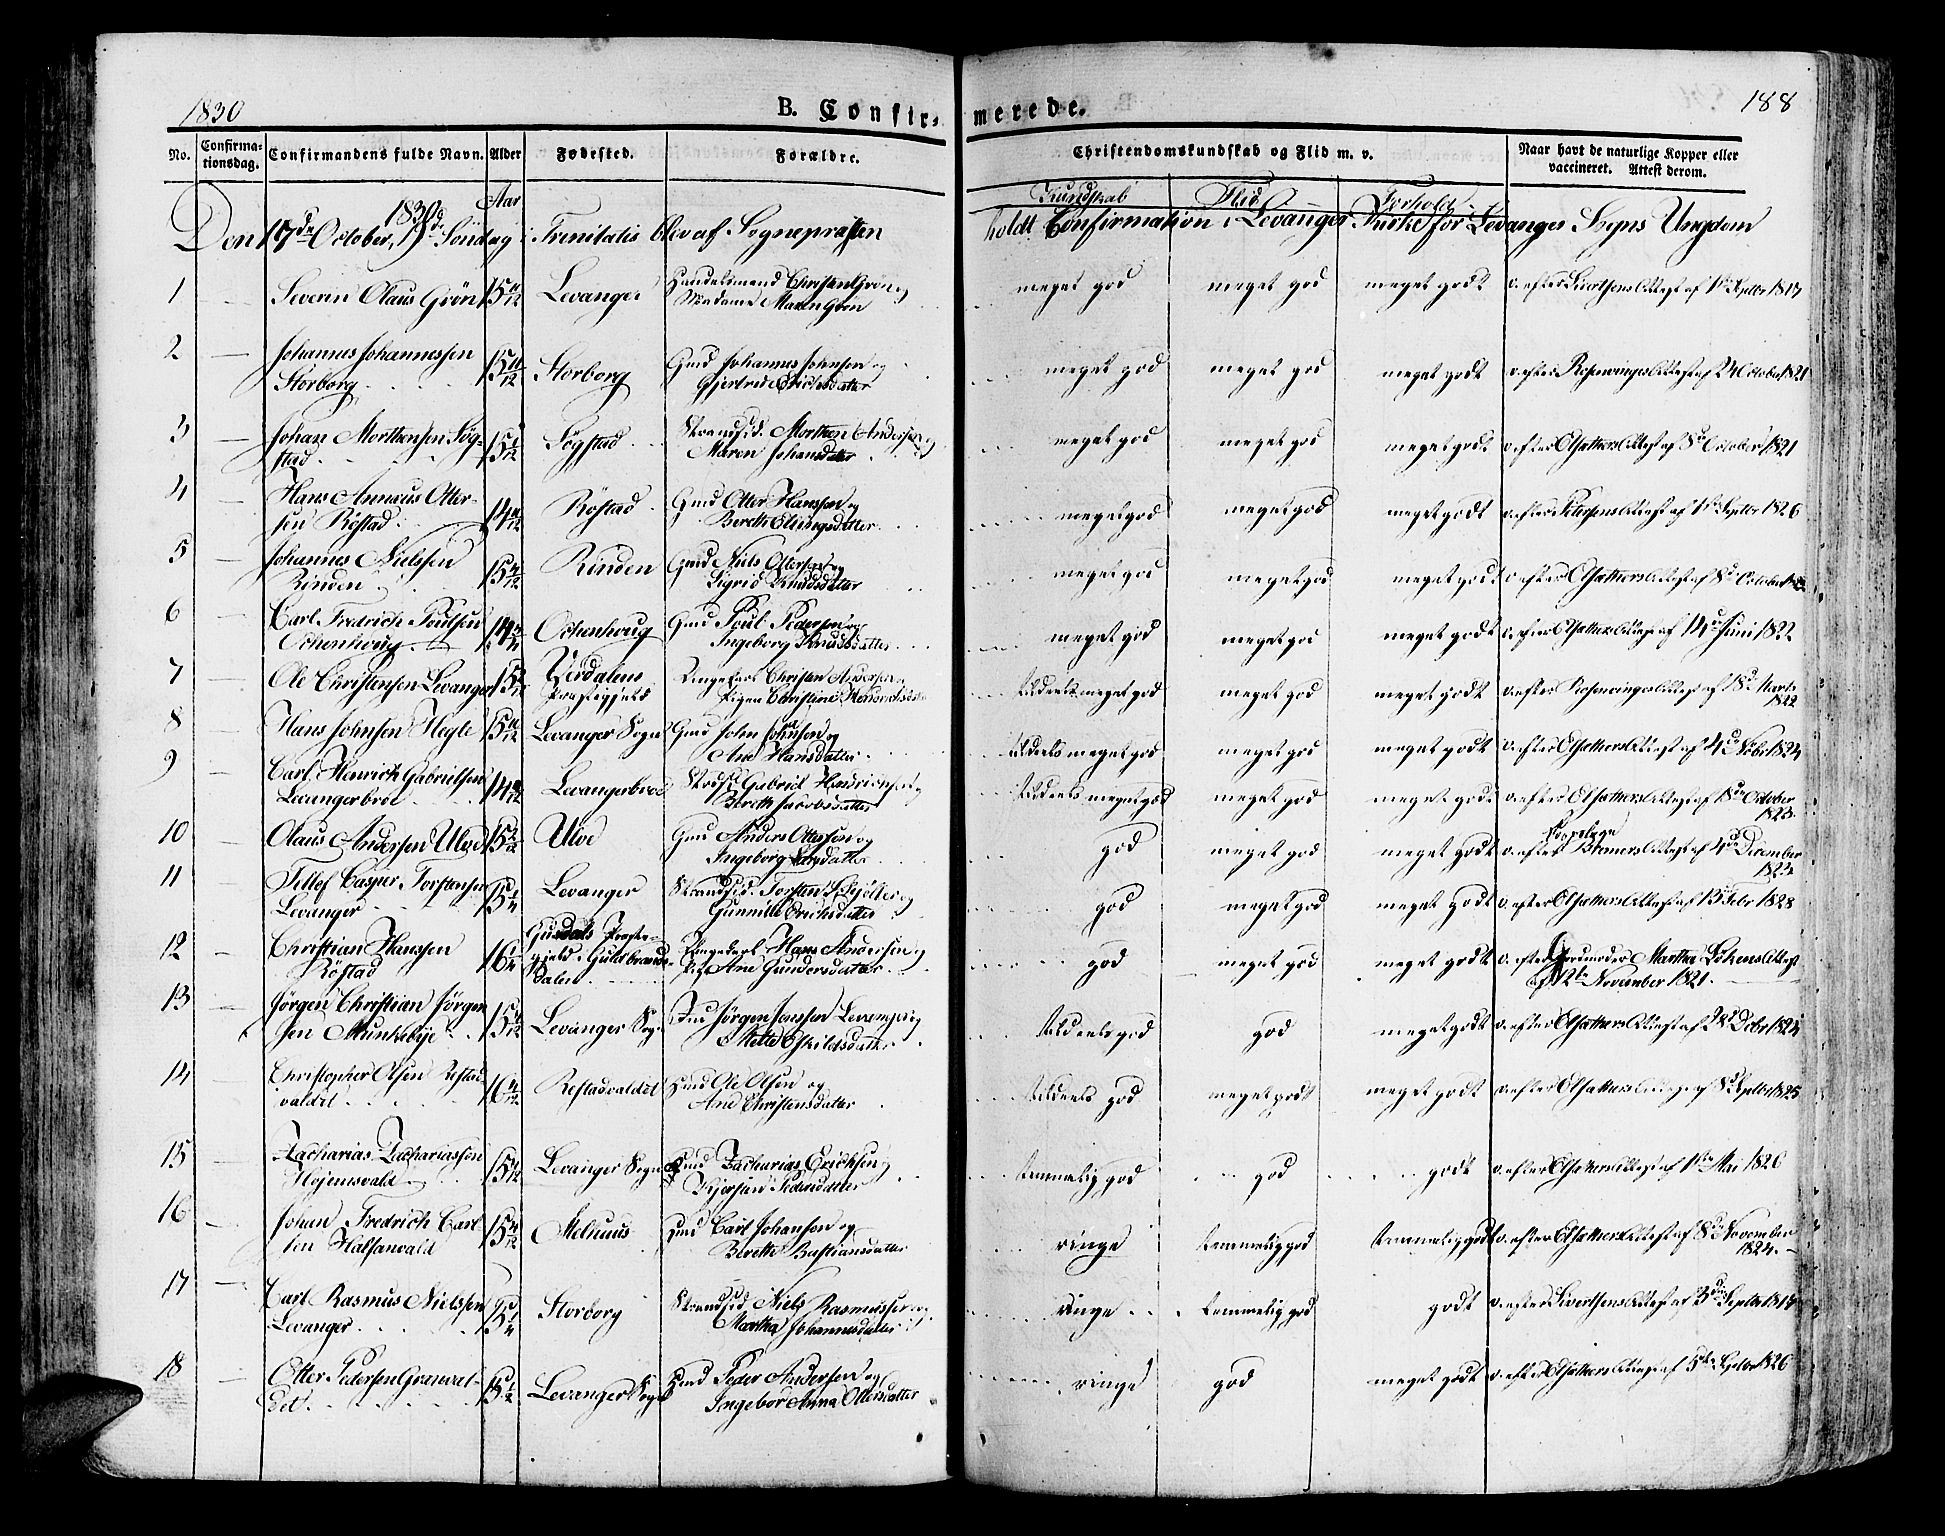 1830
B. Confir-
merede.
188
No.
Confirma-
tionsdag.
Confirmandens fulde Navn.
Alder
Fødested.
Forældre.
Christendomskundskab og Flid m. v.
Naar havt de naturlige Kopper eller
vaccineret. Attest derom.
Aar
Kundskab
Flid
Forhold
1830
Den 17de October, 19de Søndag i Trinitatis blev af Sognepræsten holdt Confirmation i Levanger Kirke for Levanger Sogns Ungdom
1 Severin Olaus Grön 15 11/12 Levanger Handelsmand Christen Grön og
Madame Maren Grön meget god meget god meget godt v. efter Sivertsens Attest af 1ste Septbr 1817
2 Johannes Johannessen
Storborg 15 11/12 Storborg Gmd Johannes Johnsen og
Gjertrud Erichsdatter meget god meget god meget godt v. efter Rosenvinges Attest af 24 October 1821
3 Johan Morthensen Søg-
stad 15 Søgstad Strandsid. Morthen Andersen og
Maren Johansdatter meget god meget god meget godt v. efter Elsæthers Attest af 8de October 1821
4 Hans Annæus Otter-
sen Röstad 14 Röstad Gmd Otter Hanssen og
Bereth Ellingsdatter meget god meget god meget godt v. efter Petersens Attest af 1ste Septbr 1826
5 Johannes Nielssen
Rinden 15 Rinden Gmd Niels Ottersen og
Sigrid Knudsdatter meget god meget god meget godt v. efter Elsæthers Attest af 8de October
6 Carl Fredrich Poulsen
Ockenhoug 14 Ockenhoug Gmd Poul Pedersen og
Ingeborg Knudsdatter meget god meget god meget godt v. efter Elsæthers Attest af 14de Juni 1822
7 Ole Christensen Levanger 15 Værdalens
Præstegjeld Ungekarl Christen Andersen og
Pigen Christine tildeels meget god meget god meget godt v. efter Rosenvinges Attest af 18de Marts
1822
8 Hans Johnsen Hegle 15 11/12 Levanger Sogn Gmd John Johnsen og
Ane Hansdatter tildeels meget god meget god meget godt v. efter Elsæthers Attest af 4de Novbr 1824
9 Carl Henrich Gabrielsen
Levangerbroe 14 Levangerbroe Gabriel Henrichsen og
Bereth Jacobsdatter tildeels meget god meget god meget godt v. efter Elsæthers Attest af October
1823
10 Olaus Andersen Ulve 15 Ulve Gmd Anders Ottersen og
Ingeborg Larsdatter god meget god meget godt v. efter Bremers Attest af 4de December
1823
11 Tellef Casper Torstensen
Levanger 15 1/4 Levanger Strandsid. Torsten og
Gunnild Erichsdatter god meget god meget godt v. efter Elsæthers Attest af 13de Febr 1828
12 Christian Hanssen
Röstad 16 1/4 Præste-
gjeld i Guldbrands-
dalen Ungekarl Hans Andersen og
Pig. Ane Gundersdatter god meget god meget godt v. efter Jordmoder Martha Attest
af 12te November 1821.
13 Jörgen Christian Jörgen-
sen Munkebye 15 Levanger Sogn Ind. Jörgen Jonssen Levanger og
Mette Eskildsdatter tildeels god god meget godt v. efter Elsæthers Attest af Octbr 1824
14 Christopher Olsen Restad-
valdet 16 Restadvaldet Hmd Ole Olsen og
Ane Christensdatter tildeels god meget godt meget godt v. efter Elsæthers Attest af 8de Septbr 1825
15 Zacharias Zachariassen
Højemsvald 15 Levanger Sogn Hmd Zacharias Erichsen og
Kjerstine Pedersdatter temmelig god god godt v. efter Elsæthers Attest af 1ste Mai 1826
16 Johan Fredrich Carl-
sen Halsanvald 15 Melhuus Hmd Carl Johansen og
Berethe Bastiansdatter ringe temmelig god temmelig godt v. efter Elsæthers Attest af 8de November
1824
17 Carl Rasmus Nielssen
Levanger 15 1/4 Storborg Strandsid. Niels Rasmussen og
Martha Johannesdatter ringe temmelig god godt v. efter Sivertsens Attest af 3die Septbr
18 Otter Pedersen Grønval-
det 15 1/2 Levanger Sogn Hmd Peder Andersen og
Ingebor Anna Ottersdatter ringe god meget godt v. efter Elsæthers Attest af 5te Septbr 1826